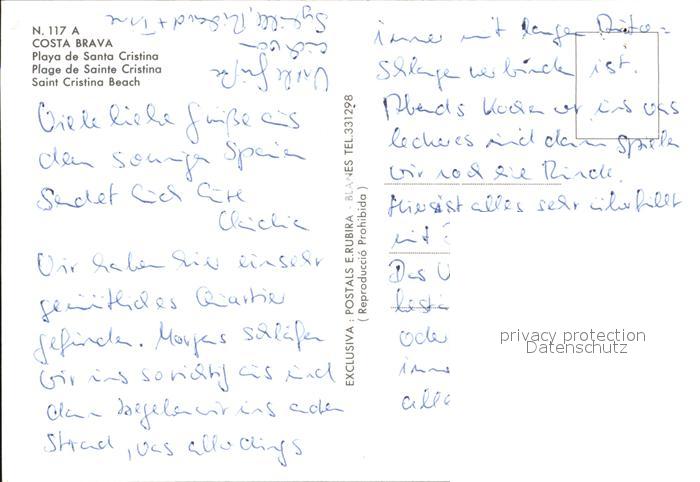 N. 117 A
COSTA BRAVA
Playa de Santa Cristina
Plage de Sainte Cristina
Saint Cristina Beach
Viele liebe Grüße aus
dem sonnigen Spanien
Sendet Euch Eure
Claudia
Wir haben hier ein sehr
gemütliches Quartier
gefunden. Morgens schlafen
wir uns so richtig aus und
dann begeben wir uns an den
Strand, was allerdings
immer mit langen Auto-
schlangen verbunden ist.
Abends kochen wir uns was
leckeres und dann spielen
wir noch eine Runde.
Hier ist alles sehr überfüllt
mit
Das
oder
imm
alle
Viele Grüße
auch von
Sybille, Richard +
EXCLUSIVA : POSTALS E.RUBIRA - BLANES TEL.331298
( Reproducció Prohibida )
privacy protection
Datenschutz